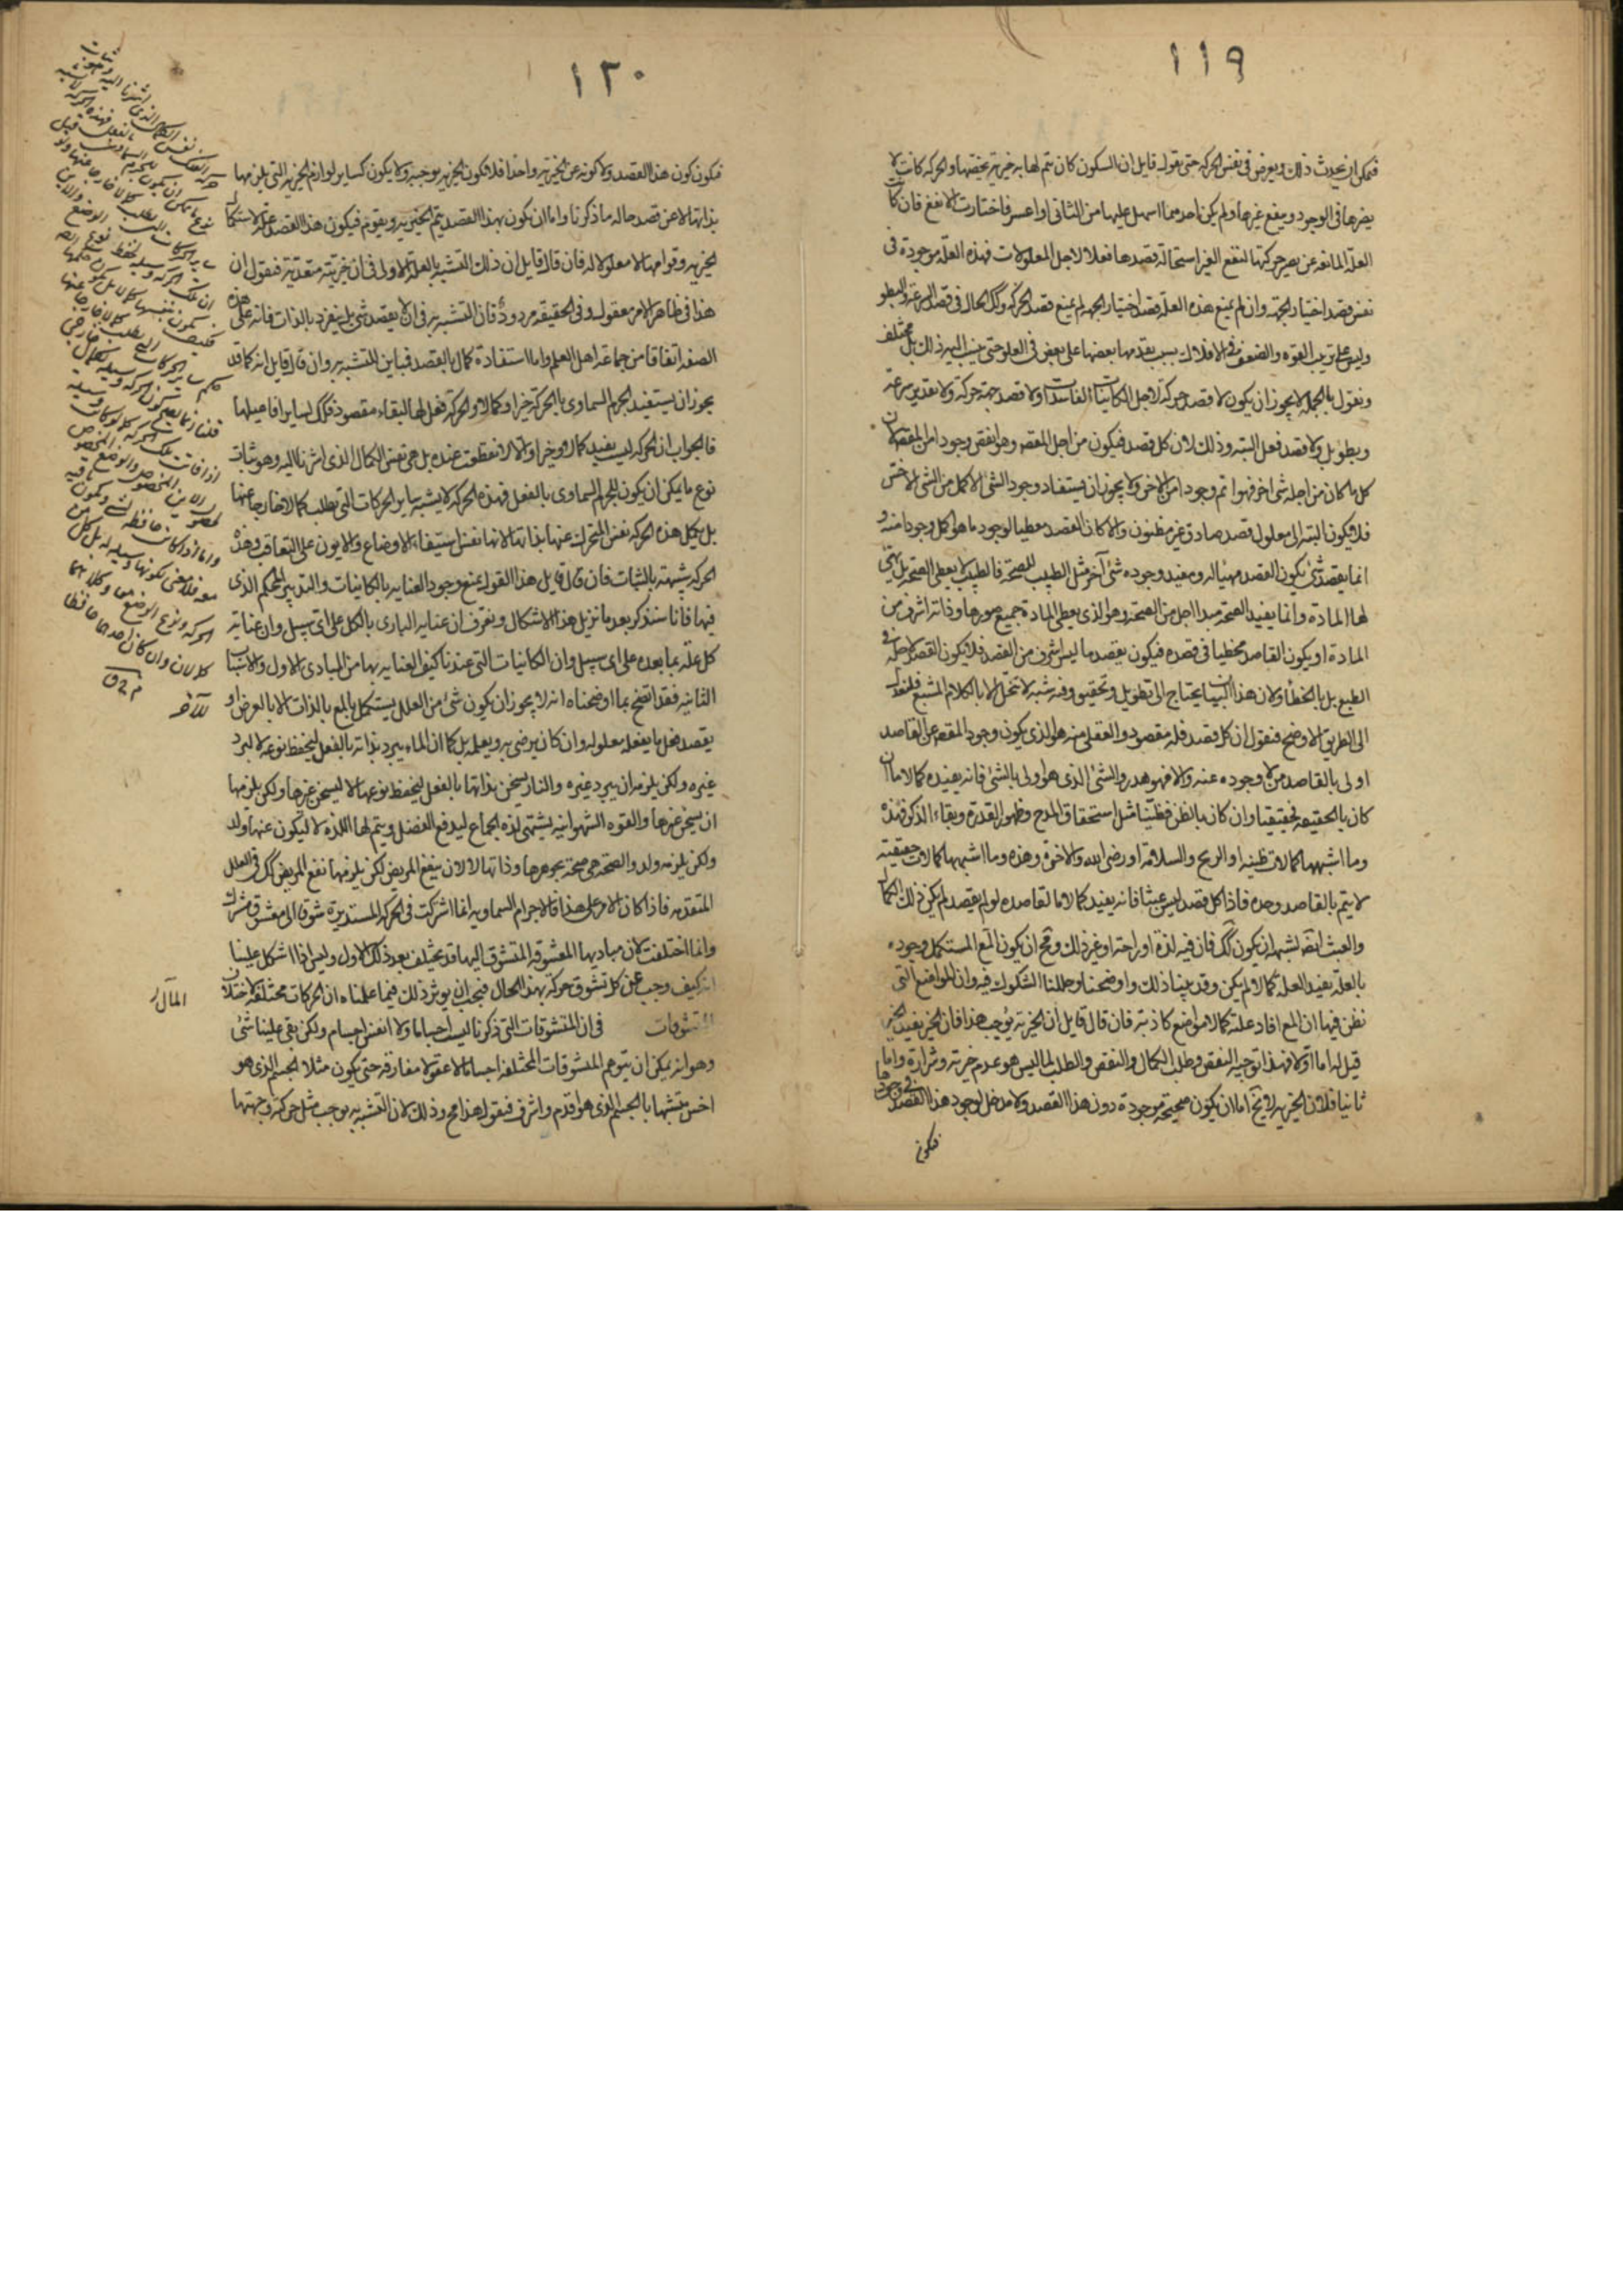 ١١٩
فيمكن ان يحدث ذلك ويعرض في نفس الحركة حتى يقول قايل ان السكون كان يتم لها به خيرية تخصها والحركة كانت لا
يضرها في الوجود وينفع غيرها ولم يكن احدهما اسهل عليها من الثاني او اعسر فاختارت الانفع فان كانت
العلة المانعة عن تصير حركتها لنفع الغير استحالة قصدها فعلا لاجل المعلولات فهذه العلة موجودة في
نفس قصد اختيار الجهة وان لم يمنع هذه العلة قصد اختيار الجهة لم يمنع قصد الحركة وكك الحال في قصد السرعة والبطو
وليس على ترتيب القوة والضعف في الافلاك بسبب تقدمها بعضها على بعض في العلو حتى ينسب اليه ذلك بل مختلف
ونقول بالجملة لا يجوز ان يكون لا قصد حركة لاجل الكاينات الفاسدات ولا قصد جهة حركة ولا تقدير سرعة
وبطو بل ولا قصد فعل البتة وذلك لان كل قصد فيكون من اجل المقصود وهو انقص وجودا من المقصود لان
كل ما كان من اجله شئ اخر فهو اتم وجودا من الاخر ولا يجوز ان يستفاد وجود الشئ الاكمل من الشئ الاخس
فلا يكون البتة الى معلول قصد صادق غير مظنون والا كان القصد معطيا لوجود ما هو اكمل وجودا منه و
انما يقصد شئ يكون القصد مهيئا له ومفيد وجوده شئ آخر مثل الطبيب للصحة فالطبيب لا يعطى الصحة بل يهيئ
لها المادة وانما يفيد الصحة مبدا اجل من الصحة وهو الذى يعطى المادة جميع صورها وذاته اشرف من
المادة او يكون القاصد مخطيا في قصده فيكون يقصد ما ليس اشرف من القصد فلا يكون القصد لاجله في
الطبع بل بالخطأ ولان هذا البيان يحتاج الى تطويل وتحقيق وفيه شبه لا تنحل الا بالكلام المشبع فلنعدل
الى الطريق الاوضح فنقول ان كل قصد فله مقصود والعقلى منه هو الذى يكون وجود المقصود عن القاصد
اولى بالقاصد من لا وجوده عنه والا فهو هدر والشئ الذى هو اولى بالشئ فانه يفيده كمالا ما ان
كان بالحقيقة فحقيقيا وان كان بالظن فظنيا مثل استحقاق المدح وظهور القدرة وبقاء الذكر فهذه
وما اشبهها كمالات ظنية او الربح والسلامة او رضى الله والاخرة وهذه وما اشبهها كمالات حقيقية
لا يتم بالقاصد وحده فاذا كل قصد ليس عبثا فانه يفيد كمالا ما لقاصده لو لم يقصد لم يكن ذلك الكمال
والعبث ايضا يشبه ان يكون كك فان فيه لذة او راحة او غير ذلك ومح ان يكون المع المستكمل وجوده
بالعلة يفيد العلة كمالا لم يكن وقد بينا ذلك واوضحنا وحللنا الشكوك فيه وان المواضع التى
نظن فيها ان المع افاد علة كمالا مواضع كاذبة فان قال قايل ان الخيرية يوجب هذا فان الخير يفيد الخير
قيل له اما اولا فهذا توجبه النقص وطلب الكمال والنقص والطلب لما ليس هو عدم خيرية وشرارة واما
ثانيا فلان الخيرية لا يخ اما ان يكون صحيحة موجودة دون هذا القصد ولا مدخل لوجود هذا القصد في وجودها
فيكون
١٢٠
فيكون كون هذا القصد ولا كونه عن الخيرية واحدا فلا يكون الخيرية يوجبه ولا يكون كساير لوازم الخيرية التى يلزمها
بذاتها لا عن قصد حاله ما ذكرنا واما ان يكون بهذا القصد يتم الخيرية ويقوم فيكون هذا القصد علة لاستكمال
الخيرية وقوامها لا معلولا له فان قال قايل ان ذلك التشبه بالعلة الاولى في ان خيريته متعدية فنقول ان
هذا في ظاهر الامر مقبول وفي الحقيقة مردود فان التشبه به في ان لا يقصد شئ بل ينفرد بالذات فانه على هذه
الصفة اتفاقا من جماعة اهل العلم واما استفادة كمال بالقصد فمباين للتشبه به وان قال قايل انه كما قد
يجوز ان يستفيد الجرم السماوى بالحركة خيرا وكمالا والحركة فعل لها البقاء مقصود فكك لساير افاعيلها
فالجواب ان الحركة ليست يفيد كمالا وخيرا والا لانقطعت عنده بل هى نفس الكمال الذى اشرنا اليه وهو ثبات
نوع ما يمكن ان يكون للجرم السماوى بالفعل فهذه الحركة لا يشبه ساير الحركات التى يطلب كمالا خارجا عنها
بل يكمل هذه الحركة نفس المتحرك عنها بذاتها لانها نفس استبقاء الاوضاع والايون على التعاقب وهذه
الحركة شبيهة بالثبات فان قال قايل هذا القول يمنع وجود العناية بالكاينات والتدبير المحكم الذى
فيها فانا سنذكر بعد ما نزيل هذا الاشكال ونعرف ان عناية البارى بالكل على اى سبيل وان عناية
كل علة بما بعده على اى سبيل وان الكاينات التى عندنا كيف العناية بها من المبادى الاول والاسباب
الثانية فقد اتضح بما اوضحناه انه لا يجوز ان يكون شئ من العلل يستكمل بالمع بالذات الا بالعرض او
يقصد فعل ما يفعله معلوله وان كان يرضى به ويعلمه بل كما ان الماء يبرد بذاته بالفعل ليحفظ نوعه لا ليبرد
غيره ولكن يلزمه ان يبرد غيره والنار يسخن بذاتها بالفعل ليحفظ نوعها لا ليسخن غيرها ولكن يلزمها
ان يسخن غيرها والقوة الشهوانية يشتهى لذة الجماع ليدفع الفضل ويتم لها اللذة لا ليكون عنها ولد
ولكن يلزمه ولد والصحة هى صحة بجوهرها وذاتها لا لان ينفع المريض لكن يلزمها نفع المريض كك في العلل
المتقدمة فاذا كان الامر على هذا فالاجرام السماوية انما اشتركت في الحركة المستديرة شوقا الى معشوق مشترك
وانما اختلفت لان مباديها المعشوقة المتشوق اليها قد يختلف بعد ذلك الاول وليس اذا اشكل علينا
انه كيف وجب عن كل تشوق حركة بهذا الحال فيجب ان يوثر ذلك فيما علمناه ان الحركات مختلفة لاختلاف
المتشوقات في ان المتشوقات التى ذكرنا ليست اجساما ولا انفس اجسام ولكن بقى علينا شئ
وهو انه يمكن ان يتوهم المتشوقات المختلفة اجساما لا عقولا مفارقة حتى يكون مثلا الجسم الذى هو
اخس متشبها بالجسم الذى هو اقدم واشرف فنقول هذا مح وذلك لان التشبه به يوجب مثل حركته وجهتها